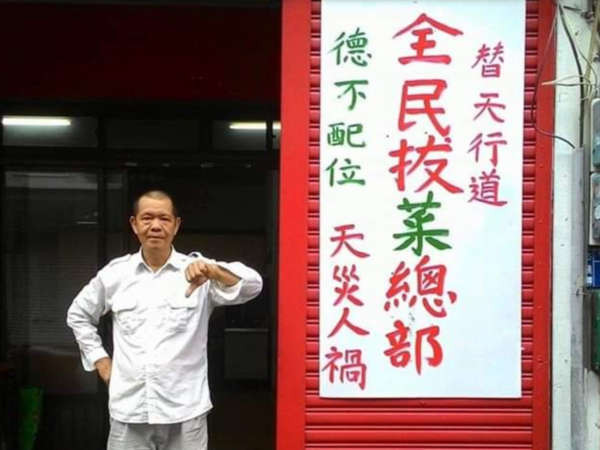 替天行道
全民拔菜總部
德不配位 天災人禍